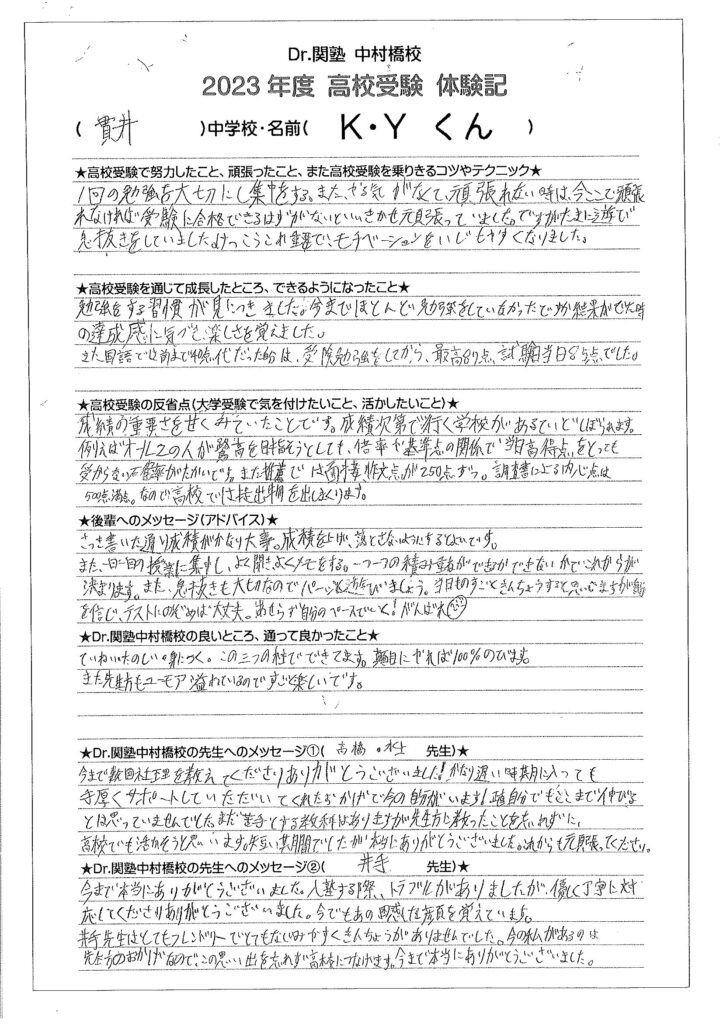 Dr.関塾 中村橋校
2023年度 高校受験 体験記
( 貫井 )中学校・名前( K・Y くん )
★高校受験で努力したこと、頑張ったこと、また高校受験を乗りきるコツやテクニック★
1回の勉強を大切にし集中をする。また、やる気がなくて、頑張れない時は、今ここで頑張
れなければ受験に合格できるはずがないといいきかせ頑張っていました。ですがたまに遊び
息抜きをしていました。けっこうこれ重要で、モチベーションをいじしやすくなりました。
★高校受験を通じて成長したところ、できるようになったこと★
勉強をする習慣が身につきました。今までほとんど勉強をしていなかったですが結果がでた時
の達成感に気づき、楽しさを覚えました。
また国語で以前まで40点代だった自分は、受験勉強をしてから、最高89点、試験当日85点でした。
★高校受験の反省点(大学受験で気を付けたいこと、活かしたいこと)★
成績の重要さを甘くみていたことです。成績次第で行く学校があるていどしぼられます。
例えばオール2の人が鷺高を目指そうとしても、倍率や基準点の関係で当日高得点をとっても
受からない確率がたかいです。また推薦では面接、作文点が250点ずつ。調査書による内心点は
500点満点。なので高校では提出物を出しまくります。
★後輩へのメッセージ(アドバイス)★
さっき書いた通り成績がかなり大事。成績を上げ、落とさないようにするとよいです。
また、一日一日の授業に集中し、よく聞きよくメモをする。一つ一つの積み重ねができるかできないかでこれからが
決まります。また、息抜きも大切なのでパーッと遊びましょう。当日ものすごくきんちょうすると思いますが自分
を信じ、テストにのぞめば大丈夫。あせらず自分のペースでいこ!がんばれ
★Dr.関塾中村橋校の良いところ、通って良かったこと★
ていねい、たのしい、身につく。この三つの柱でできてます。真面目にやれば100%のびます。
また先生方もユーモア溢れているのですごく楽しいです。
★Dr.関塾中村橋校の先生へのメッセージ①( 高橋・ 先生)★
今まで数国社理を教えてくださりありがとうございました!かなり遅い時期に入っても
手厚くサポートしていただいてくれたおかげで今の自分がいます!正直自分でもここまで伸びる
とは思っていませんでした。まだ苦手とする教科はありますが先生方に教わったことを忘れずに、
高校でも活かそうと思います。短い期間でしたが本当にありがとうございました。これからも頑張ってください。
★Dr.関塾中村橋校の先生へのメッセージ②( 井手 先生)★
今まで本当にありがとうございました。入塾する際、トラブルがありましたが、優しく丁寧に対
応してくださりありがとうございました。今でもあの時感じた感度を覚えています。
井手先生はとてもフレンドリーでとてもなじみやすくきんちょうがありませんでした。今の私があるのは
先生方のおかげなので、この思い出を忘れず高校につなげます。今まで本当にありがとうございました。